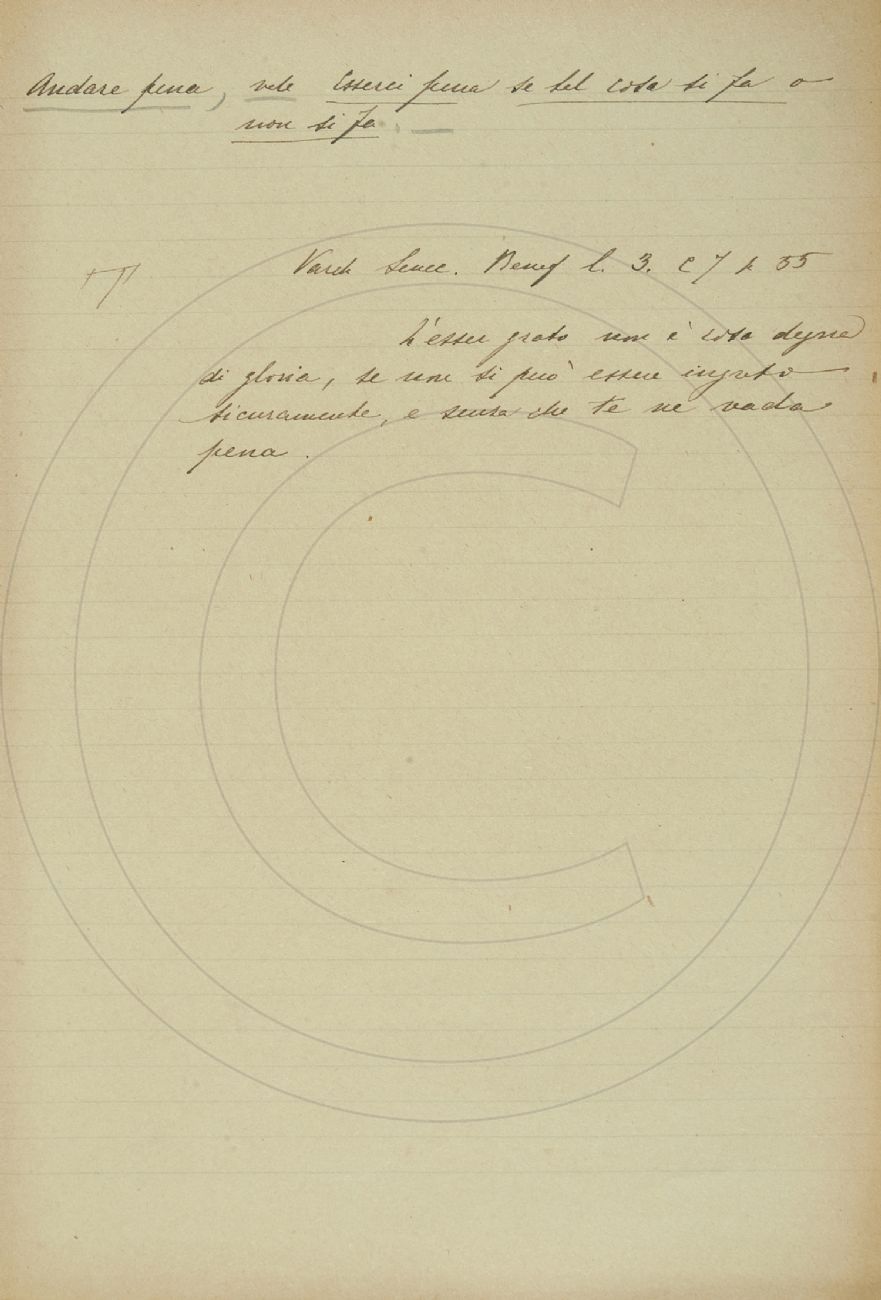 Andare pena, vale Esserci pena se tal cosa si fa o
non si fa. —
Varch Senec. Benef l. 3. c 7 p 55
L'esser grato non è cosa degna
di gloria, se non si può essere ingrato
sicuramente, e senza che te ne vada
pena.